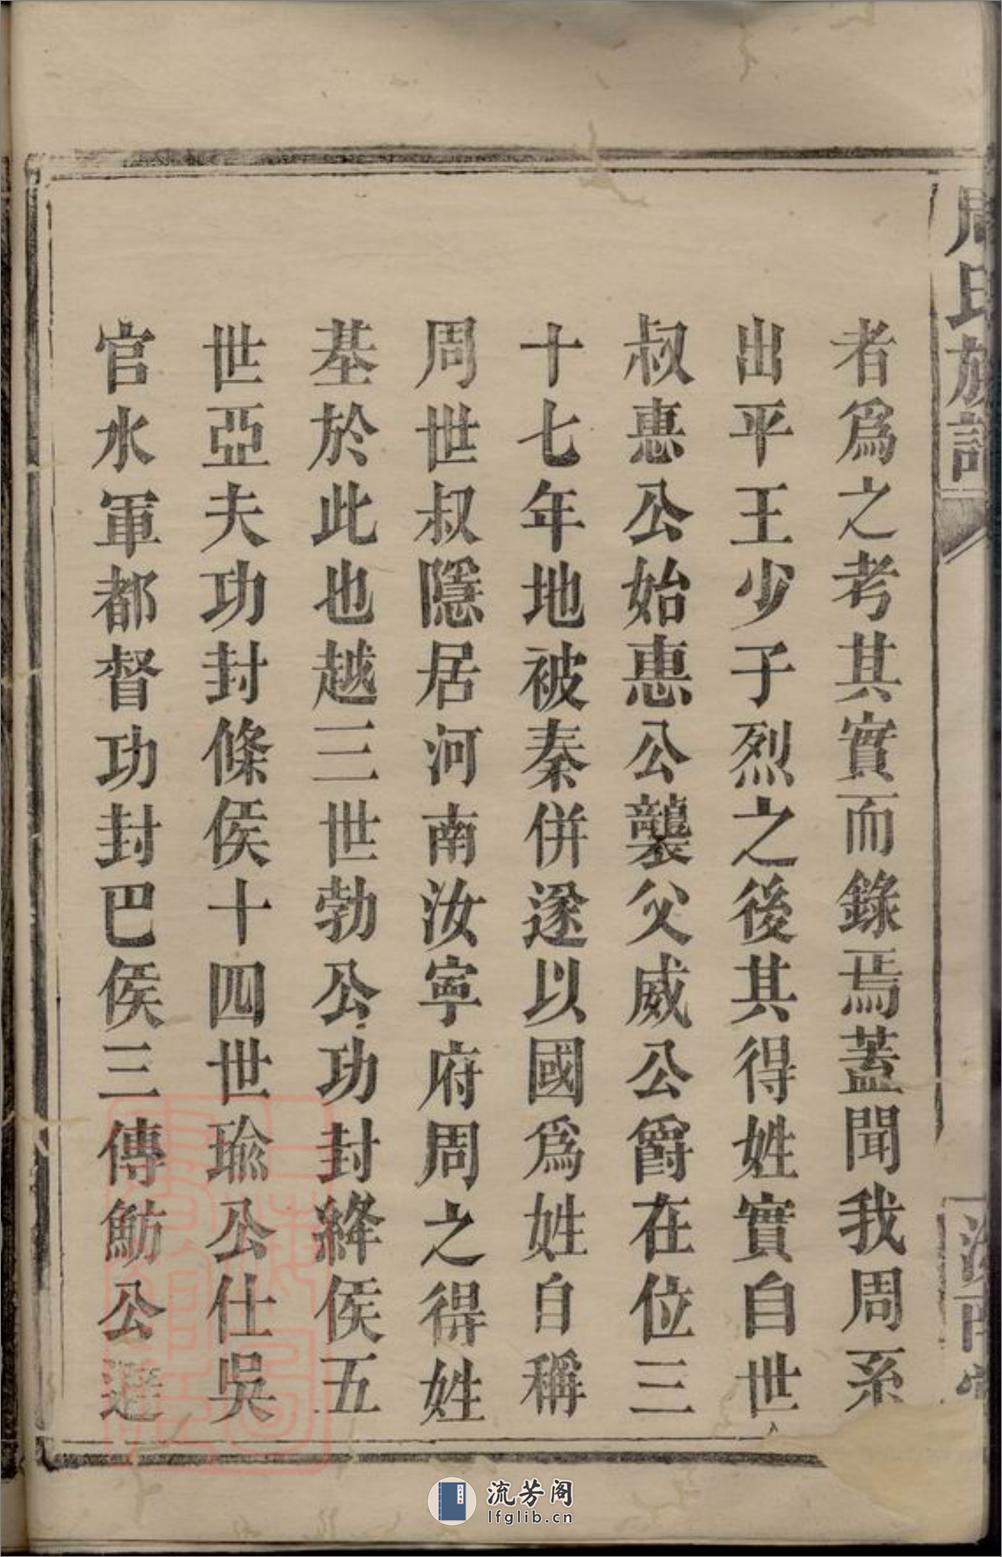 周氏族譜
者爲之考其實而錄焉蓋聞我周系
出平王少子烈之後其得姓實自世
叔惠公始惠公襲父威公爵在位三
十七年地被秦併遂以國爲姓自稱
周世叔隱居河南汝寧府周之得姓
基於此也越三世勃公功封絳侯五
世亞夫功封條侯十四世瑜公仕吳
官水軍都督功封巴侯三傳魴公遷
流芳阁
lfglib.cn